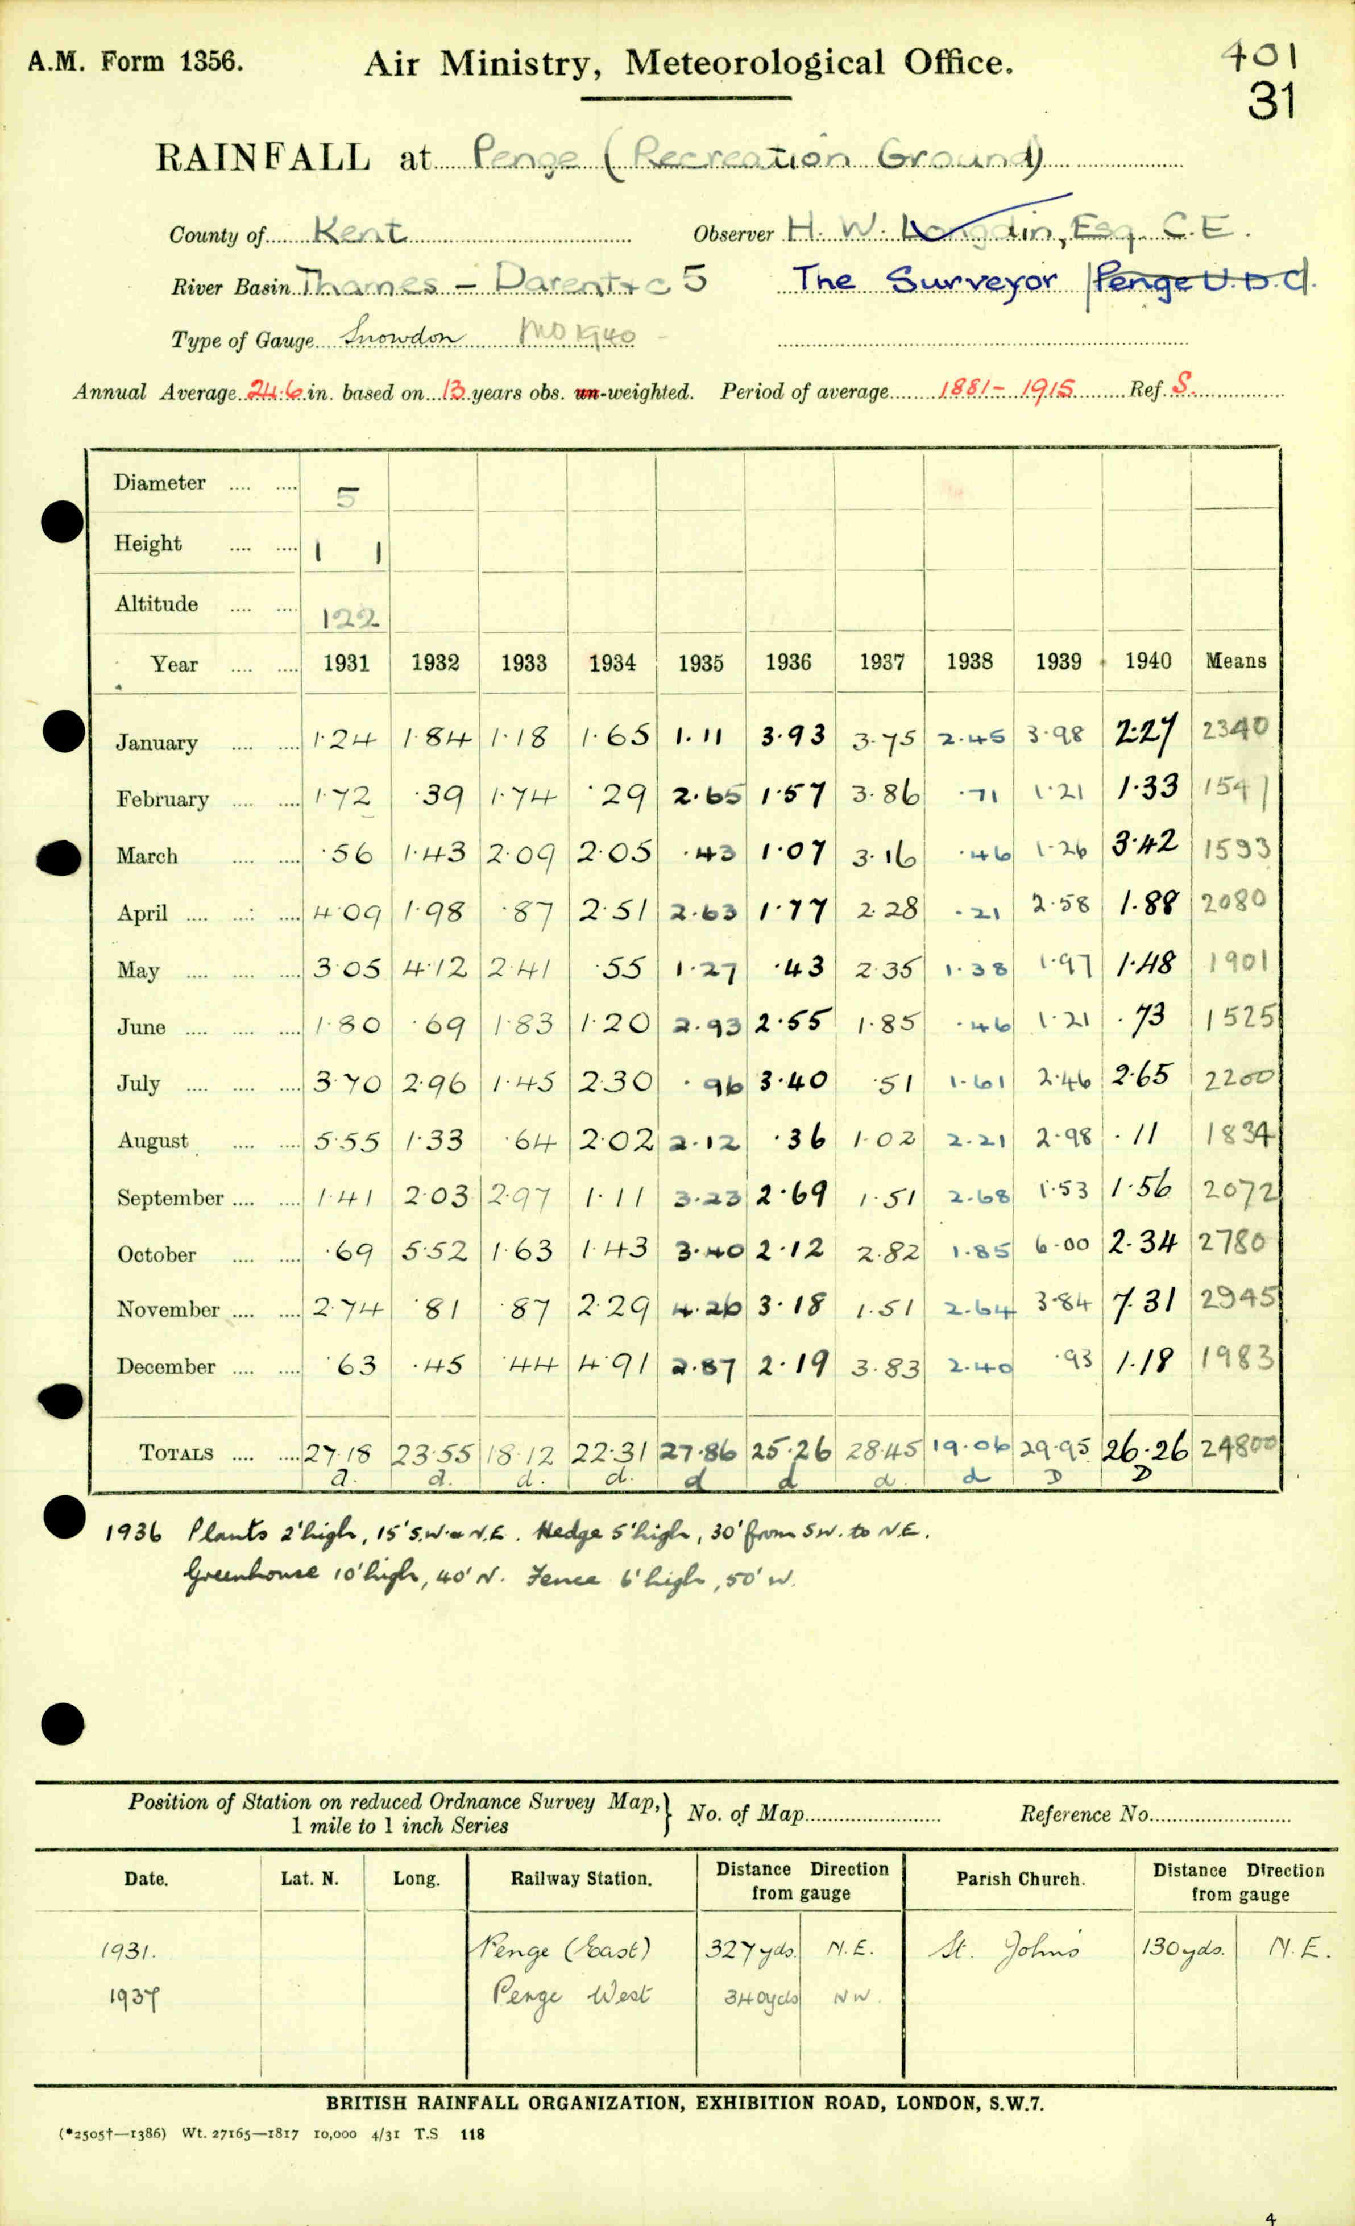 A.M. Form 1356.
Air Ministry, Meteorological Office.
401
31
RAINFALL at Penge (Recreation Ground)
County of Kent Observer H. W. Longdin, Esq. C.E.
River Basin Thames – Darent + c 5 The Surveyor Penge U.D.C.
Type of Gauge Snowdon MO 1940
Annual Average 24.6 in. based on 13 years obs. un-weighted. Period of average 1881 – 1915 Ref. S.
Diameter .... .... 5
Height .... .... 1 1
Altitude .... .... 122
Year .... .... 1931 1932 1933 1934 1935 1936 1937 1938 1939 1940 Means
January .... .... 1·24 1·84 1·18 1·65 1·11 3·93 3·75 2·45 3·98 2·27 2340
February .... .... 1·72 ·39 1·74 ·29 2·65 1·57 3·86 ·71 1·21 1·33 1547
March .... .... ·56 1·43 2·09 2·05 ·43 1·07 3·16 ·46 1·26 3·42 1593
April .... .... .... 4·09 1·98 ·87 2·51 2·63 1·77 2·28 ·21 2·58 1·88 2080
May .... .... .... 3·05 4·12 2·41 ·55 1·27 ·43 2·35 1·38 1·97 1·48 1901
June .... .... .... 1·80 ·69 1·83 1·20 2·93 2·55 1·85 ·46 1·21 ·73 1525
July .... .... .... 3·70 2·96 1·45 2·30 ·96 3·40 ·51 1·61 2·46 2·65 2200
August .... .... 5·55 1·33 ·64 2·02 2·12 ·36 1·02 2·21 2·98 ·11 1834
September .... .... 1·41 2·03 2·97 1·11 3·23 2·69 1·51 2·68 1·53 1·56 2072
October .... .... ·69 5·52 1·63 1·43 3·40 2·12 2·82 1·85 6·00 2·34 2780
November .... .... 2·74 ·81 ·87 2·29 4·26 3·18 1·51 2·64 3·84 7·31 2945
December .... .... ·63 ·45 ·44 4·91 2·87 2·19 3·83 2·40 ·93 1·18 1983
TOTALS .... .... 27·18 23·55 18·12 22·31 27·86 25·26 28·45 19·06 29·95 26·26 24800
d. d. d. d. d d d. d D D
1936 Plants 2' high, 15' S.W. & N.E. Hedge 5' high, 30' from SW. to N.E.
Greenhouse 10' high, 40' N. Fence 6' high, 50' W.
Position of Station on reduced Ordnance Survey Map, } No. of Map Reference No.
1 mile to 1 inch Series
Date. Lat. N. Long. Railway Station. Distance Direction from gauge Parish Church. Distance Direction from gauge
1931. Penge (East) 327 yds. N.E. St. John's 130 yds. N.E.
1937 Penge West 340 yds NW.
BRITISH RAINFALL ORGANIZATION, EXHIBITION ROAD, LONDON, S.W.7.
(*2505†—1386) Wt. 27165—1817 10,000 4/31 T.S 118
4